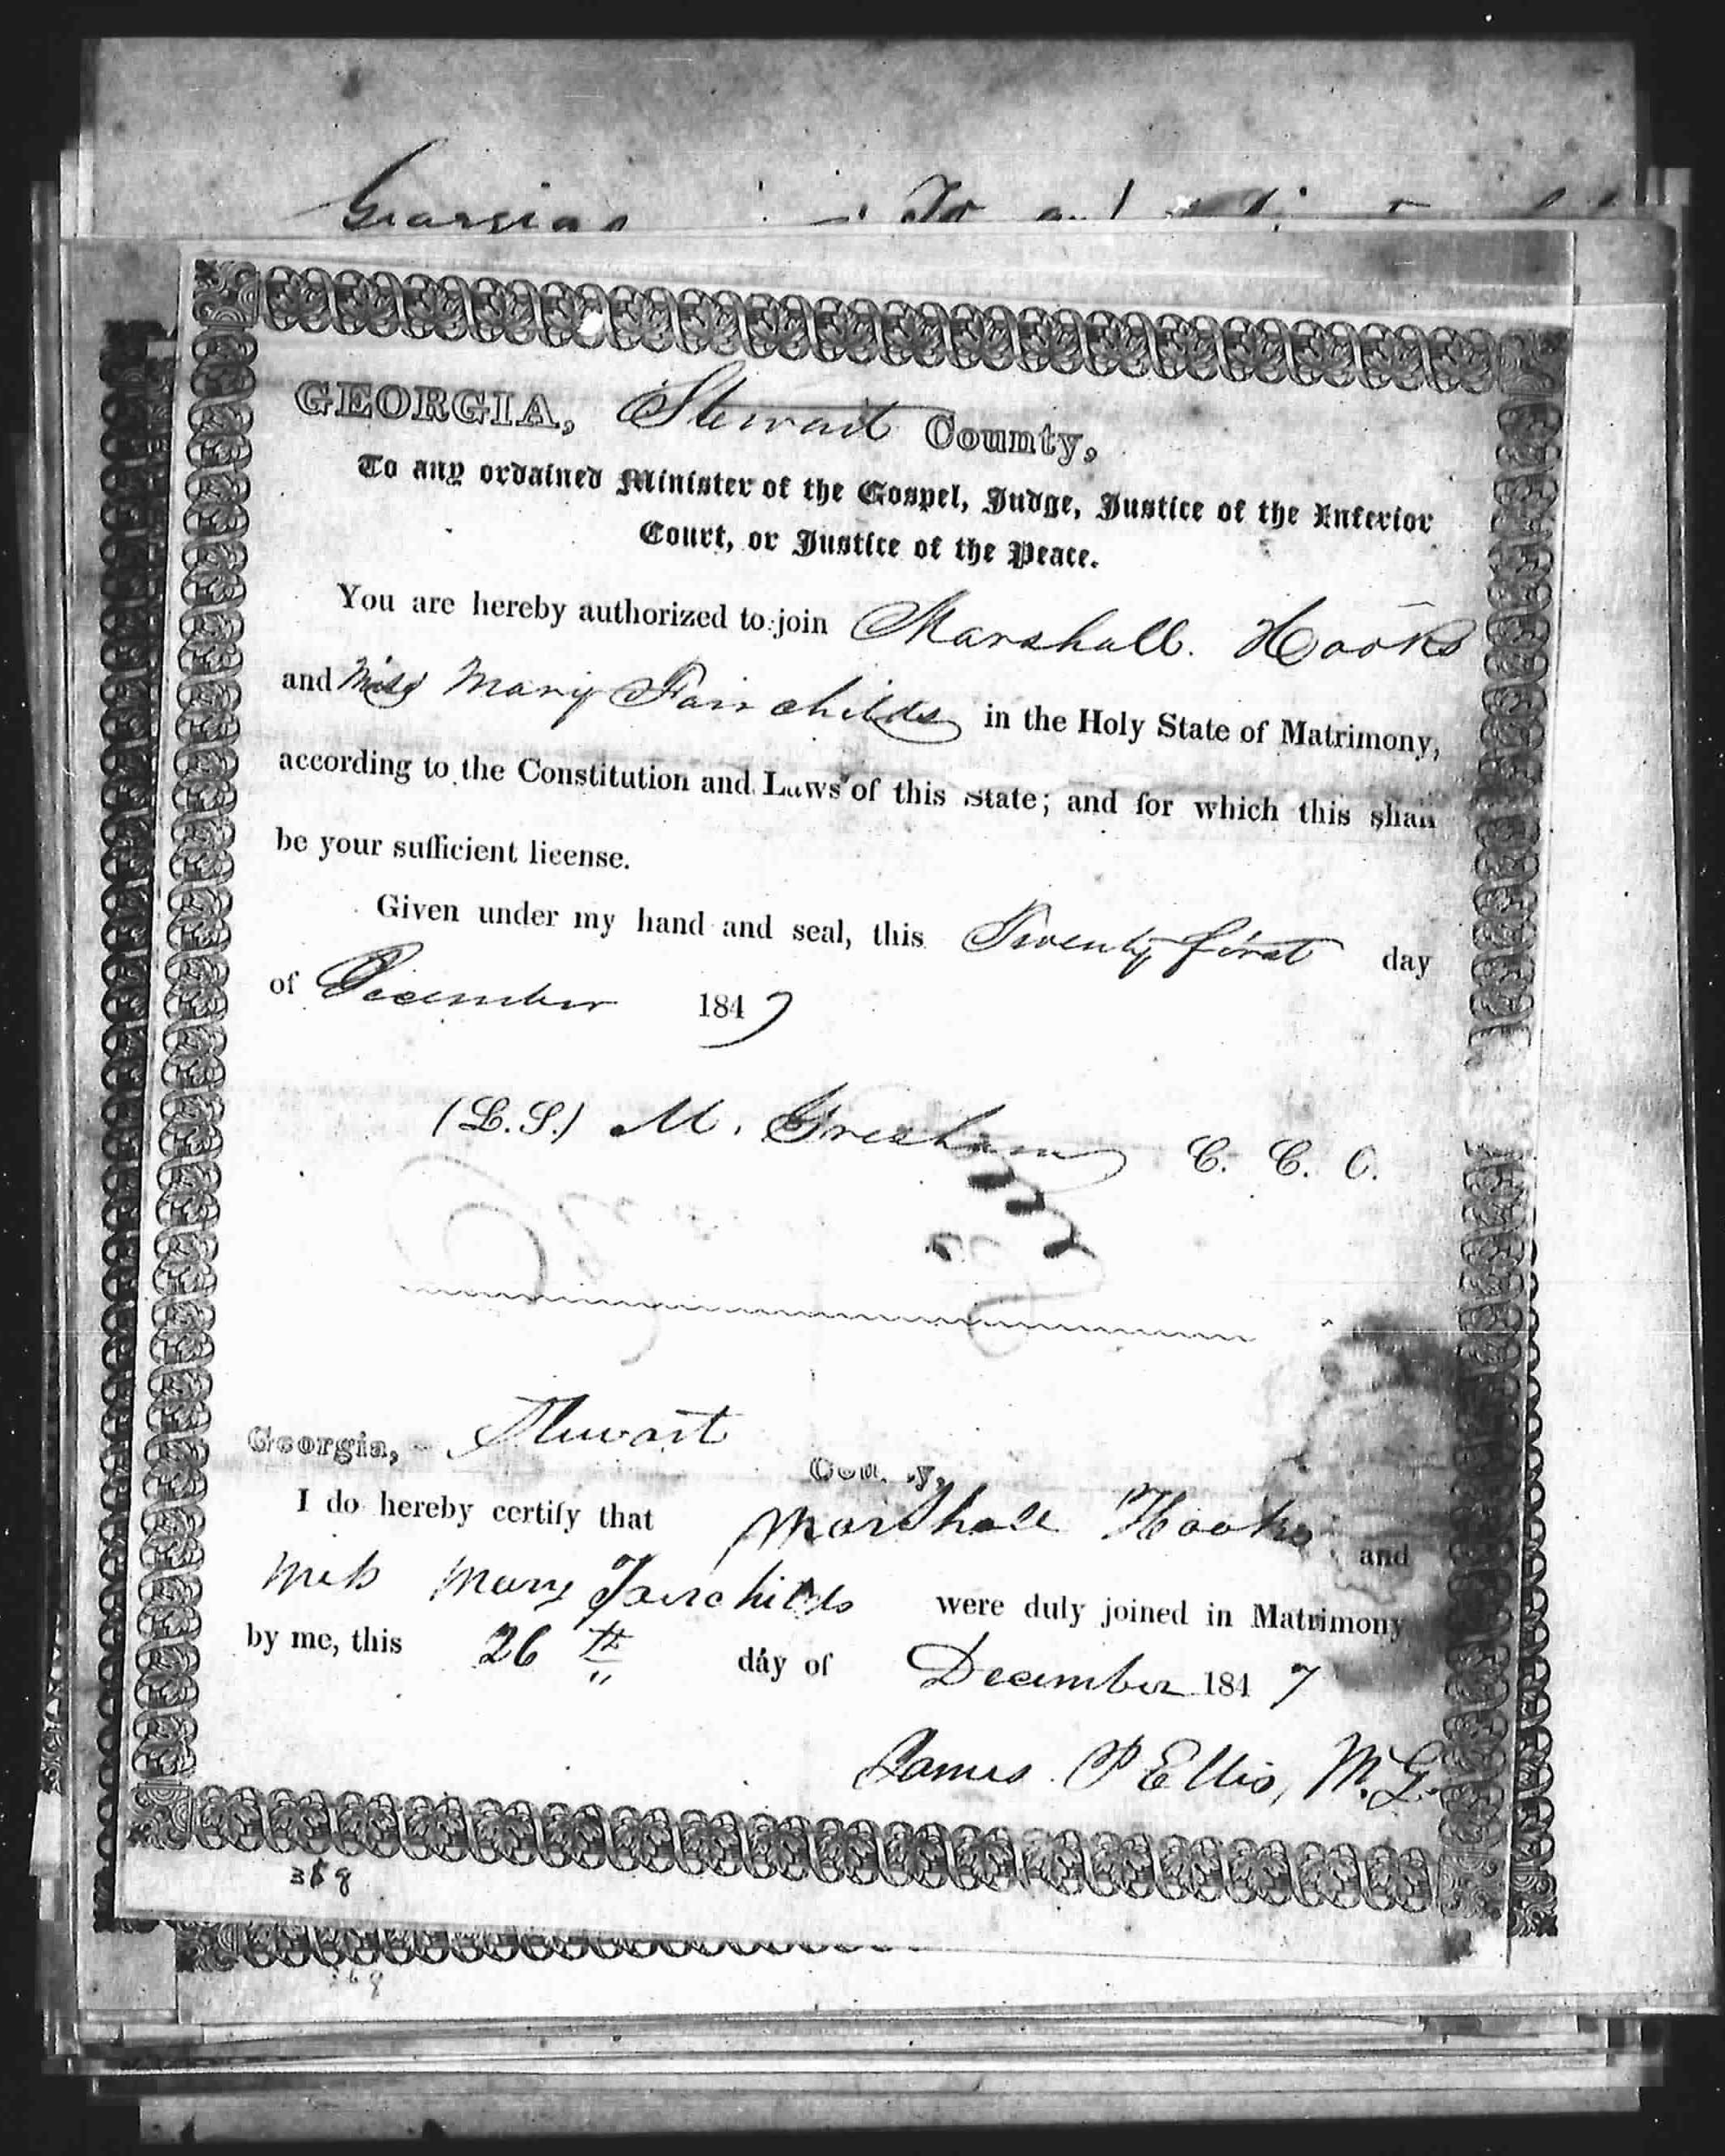 Georgia
GEORGIA, Stewart County,
To any ordained Minister of the Gospel, Judge, Justice of the Inferior
Court, or Justice of the Peace.
You are hereby authorized to join Marshall. Hooks
and Miss Mary Fairchilds in the Holy State of Matrimony,
according to the Constitution and Laws of this State; and for which this shall
be your sufficient license.
Given under my hand and seal, this Twenty first day
of December 1847
(L.S.) M. Gresham C. C. O.
Georgia, Stewart County,
I do hereby certify that Marshall Hooks and
Miss Mary Fairchilds were duly joined in Matrimony
by me, this 26th day of December 1847
James P Ellis, M.G.